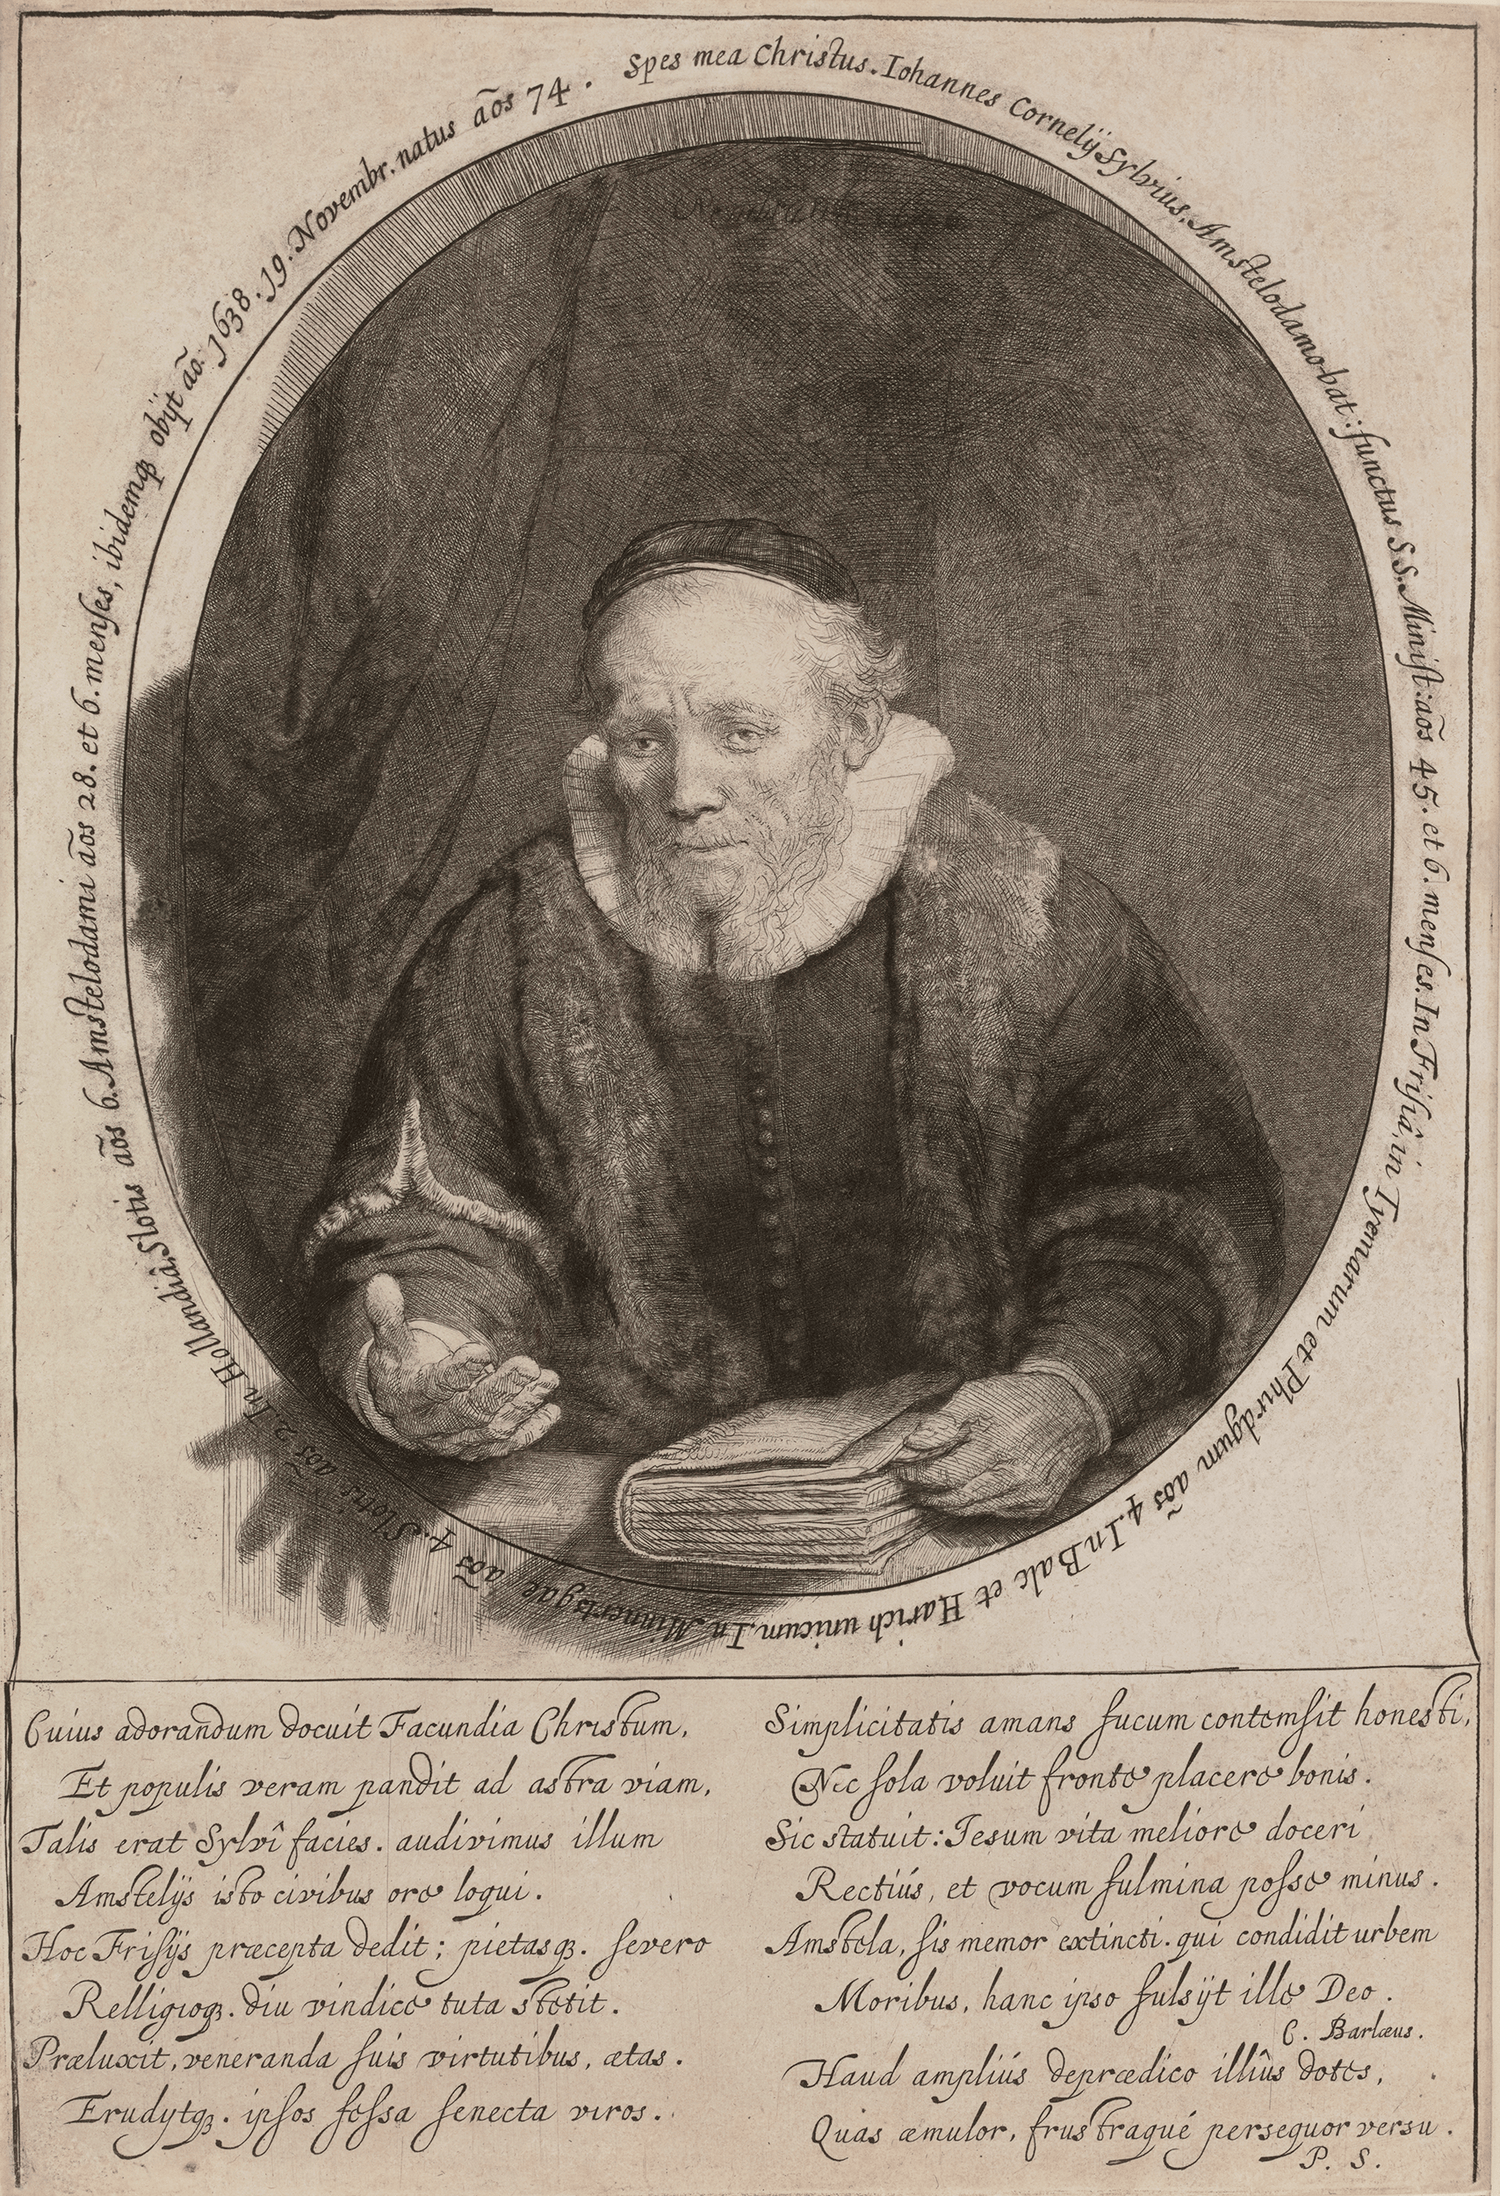 Spes mea Christus. Iohannes Cornelÿ Sylvius, Amstelodamo-bat: functus S.S. Minist: aõs 45. et 6. menses. In Frisiâ, in Tyemarum et Phirdgum aõs 4. In Balc et Harich unicum. In Minnertsgae aõs 4. Slotis aõs 2. In Hollandiâ, Slotis aõs 6. Amstelodami aõs 28. et 6. menses, ibidemqȝ obÿt aõ. 1638. 19. Novembr. natus aõs 74.
Cuius adorandum docuit Facundia Christum,
Et populis veram pandit ad astra viam,
Talis erat Sylvî facies. audivimus illum
Amstelÿs isto civibus ore loqui.
Hoc Frisÿs præcepta dedit; pietasqȝ. severo
Relligioqȝ. diu vindice tuta stetit.
Præluxit, veneranda suis virtutibus, ætas.
Erudytqȝ. ipsos fessa senecta viros.
Simplicitatis amans fucum contemsit honesti,
Nec sola voluit fronte placere bonis.
Sic statuit: Iesum vita meliore doceri
Rectiús, et vocum fulmina posse minus.
Amstela, sis memor extincti. qui condidit urbem
Moribus, hanc ipso fulsÿt ille Deo.
C. Barlæus.
Haud ampliús deprædico illîus dotes,
Quas æmulor, frustraqué persequor versu.
P. S.